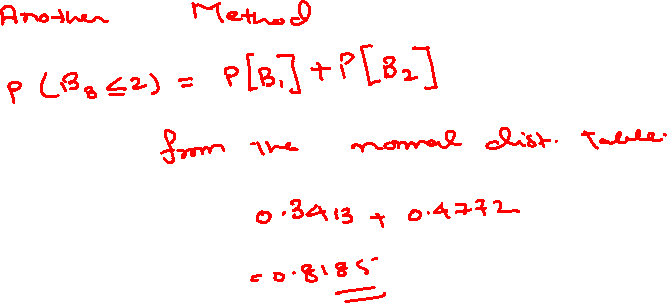 Another Method
P (B₈ ≤ 2) = P[B₁] + P[B₂]
from the normal dist. table.
0.3413 + 0.4772
= 0.8185